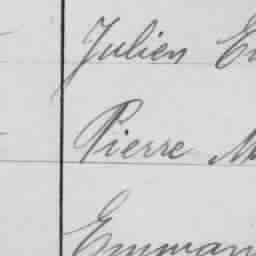 Julien E
Pierre M
Emman